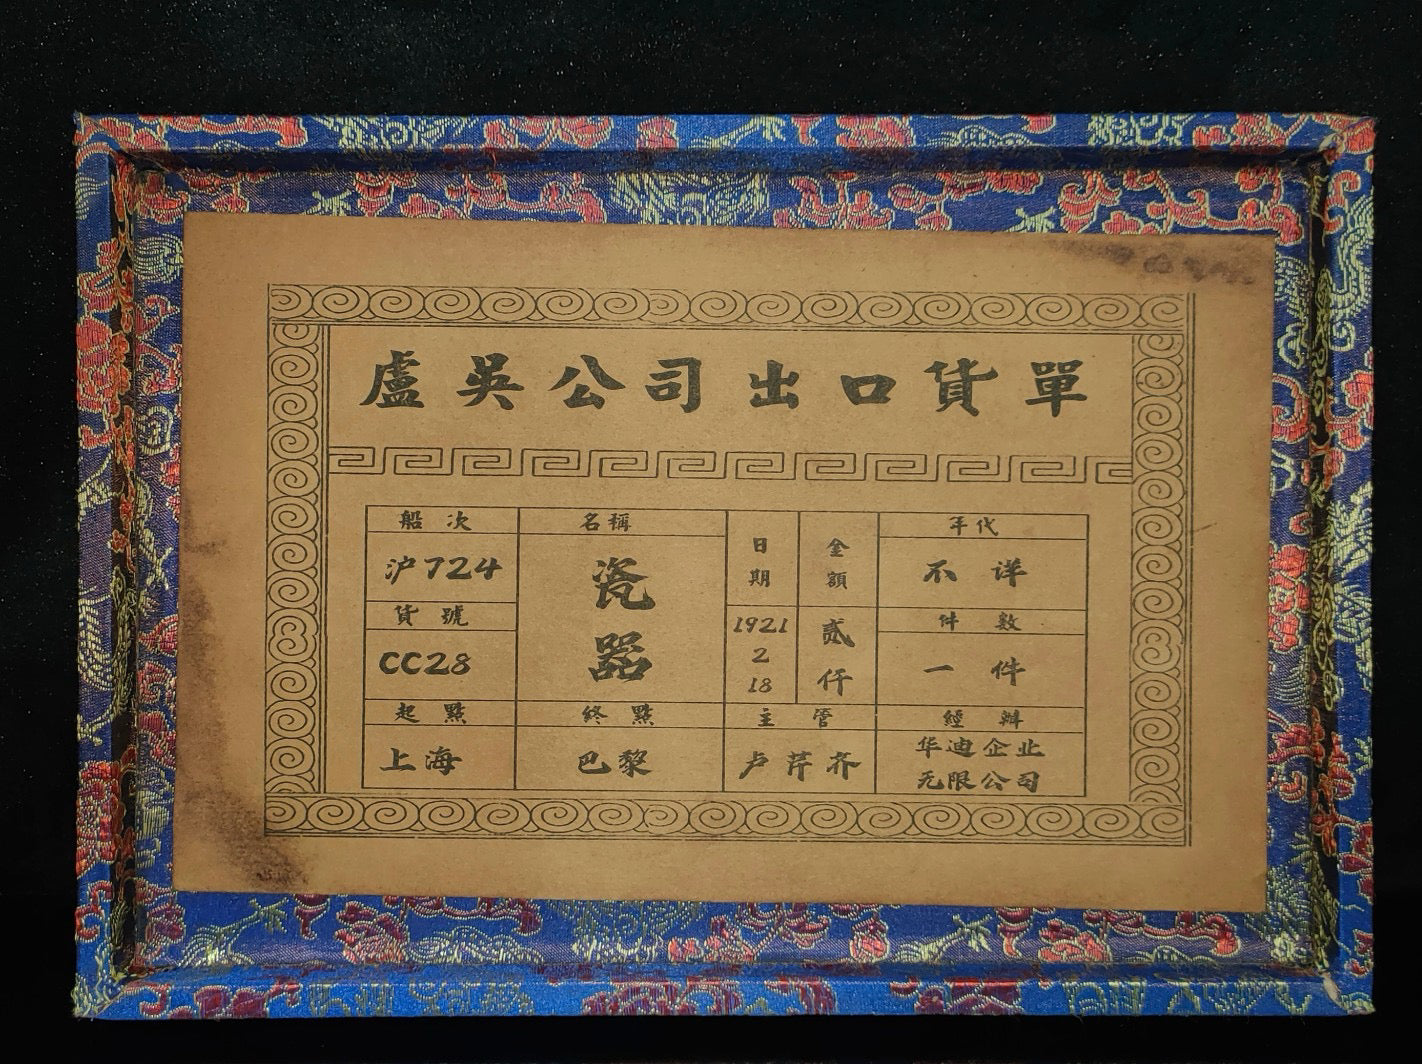 盧吳公司出口貨單
船次 名稱 日期 金額 年代
沪724 瓷器 1921 2 18 贰仟 不洋
貨號 件数
CC28 一件
起點 終點 主管 經辦
上海 巴黎 卢芹齐 华迪企业
无限公司